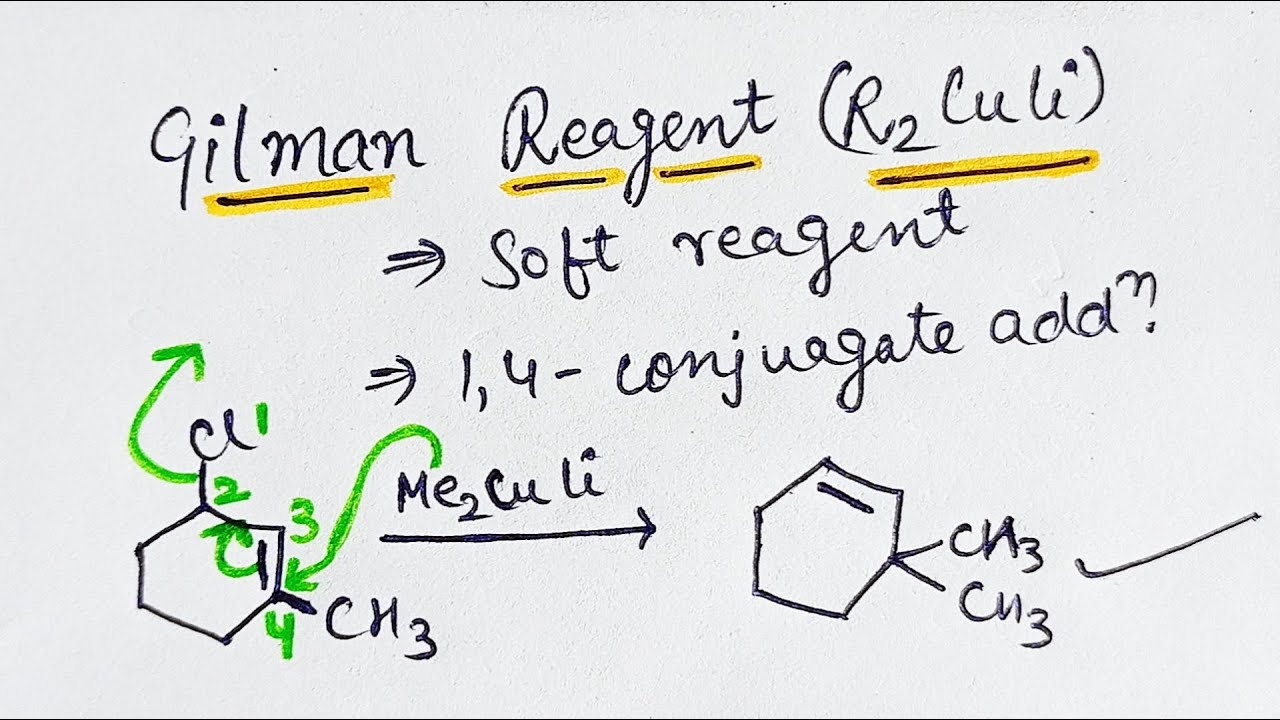 Gilman Reagent (R₂CuLi)
⇒ Soft reagent
⇒ 1,4-conjuagate addⁿ.
Cl 1
2
3
4
CH₃
Me₂CuLi
CH₃
CH₃